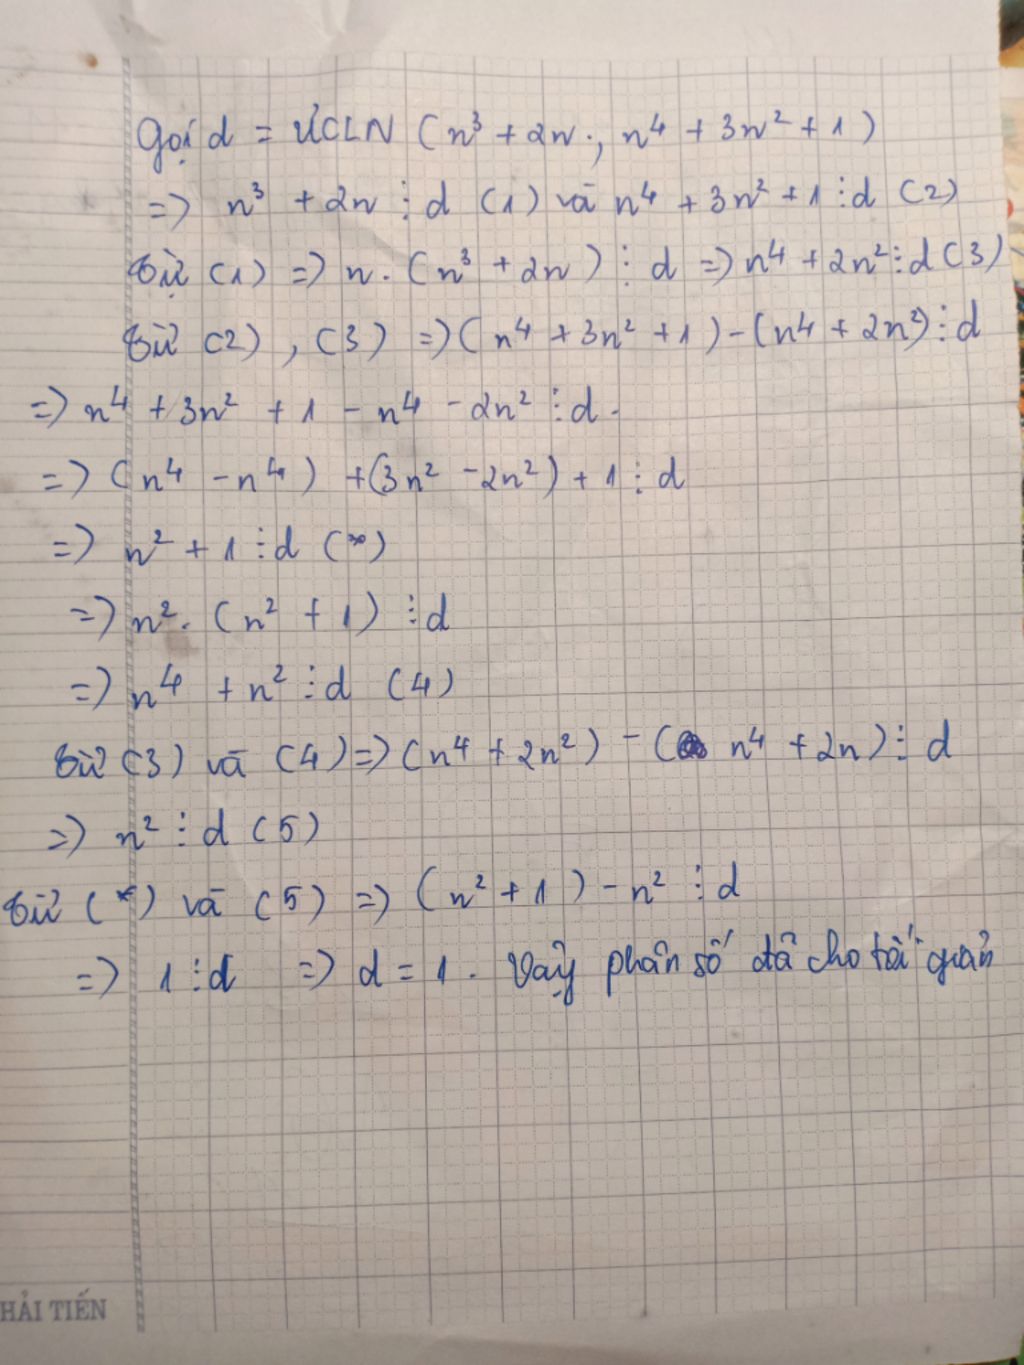 Gọi d = ƯCLN (n³ + 2n ; n⁴ + 3n² + 1)
=> n³ + 2n ⋮ d (1) và n⁴ + 3n² + 1 ⋮ d (2)
Từ (1) => n . (n³ + 2n) ⋮ d => n⁴ + 2n² ⋮ d (3)
Từ (2) , (3) => (n⁴ + 3n² + 1) - (n⁴ + 2n²) ⋮ d
=> n⁴ + 3n² + 1 - n⁴ - 2n² ⋮ d .
=> (n⁴ - n⁴) + (3n² - 2n²) + 1 ⋮ d
=> n² + 1 ⋮ d (*)
=> n² . (n² + 1) ⋮ d
=> n⁴ + n² ⋮ d (4)
Từ (3) và (4) => (n⁴ + 2n²) - ( n⁴ + 2n) ⋮ d
=> n² ⋮ d (5)
Từ (*) và (5) => (n² + 1) - n² ⋮ d
=> 1 ⋮ d => d = 1 . Vậy phân số đã cho tối giản
HẢI TIẾN